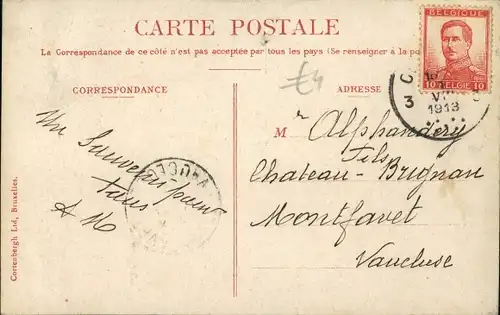 CARTE POSTALE
La Correspondance de ce côté n'est pas acceptée par tous les pays (Se renseigner à la po
CORRESPONDANCE
ADRESSE
£4
BELGIQUE
10 10
3
VII
1913
Un Souvenir pour
tous
A M
Mr Alphandéry
Fils
Chateau-Brignan
Montfavet
Vaucluse
Cortenbergh Ltd, Bruxelles.